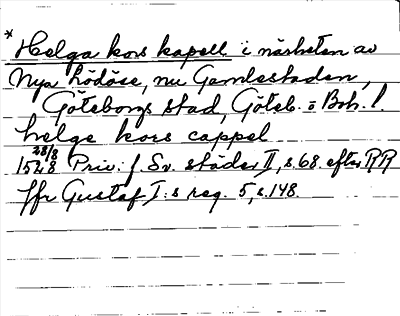 * Helga kors kapell i närheten av
Nya Lödöse, nu Gamlestaden,
Göteborgs stad, Göteb. o Boh. l.
helge kors cappel
1528 28/8 Priv. f. Sv. städer II, s. 68 efter RR
Jfr Gustaf I:s reg. 5, s. 148.